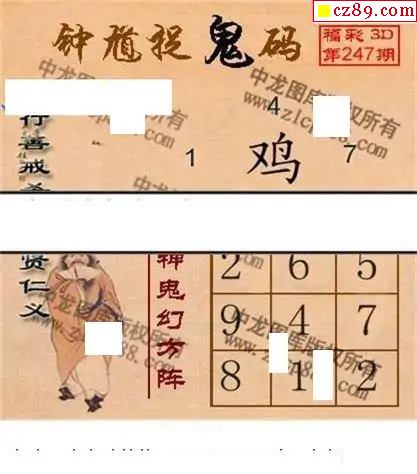 cz89.com
钟馗捉鬼码
福彩 3D
第247期
中龙图库版权所有
4
1
鸡
7
行善戒
贤仁义
神鬼幻方阵
2 6 5
9 4 7
8 1 2
中龙图库版权所有